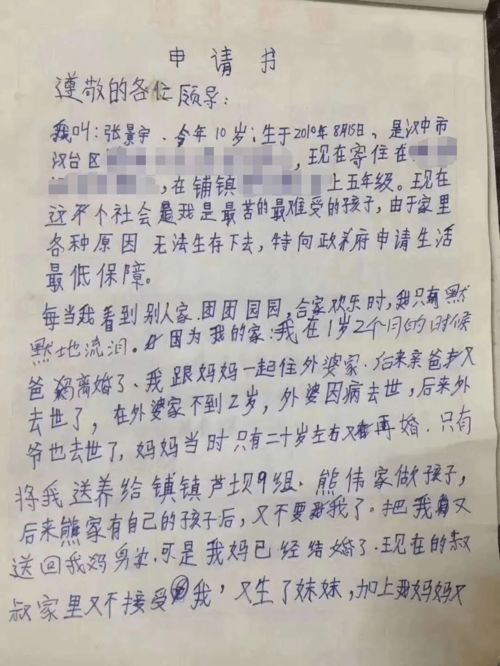 申请书
尊敬的各位领导:
我叫:张景宇、今年10岁;生于2010年8月15日、是汉中市
汉台区,现在寄住在
,在铺镇上五年级。现在
这个社会是我是最苦的最难受的孩子,由于家里
各种原因无法生存下去,特向政府申请生活
最低保障。
每当我看到别人家.团团园园,合家欢乐时,我只有默
默地流泪。因为我的家:我在1岁2个月的时候
爸妈离婚了、我跟妈妈一起住外婆家.后来亲爸又
去世了,在外婆家不到2岁,外婆因病去世,后来外
爷也去世了,妈妈当时只有二十岁左右又再婚.只有
将我送养给铺镇芦坝9组.熊伟家做孩子,
后来熊家有自己的孩子后,又不要我了.把我又
送回我妈身边.可是我妈已经结婚了.现在的叔
叔家里又不接受我,又生了妹妹,加上我妈妈又